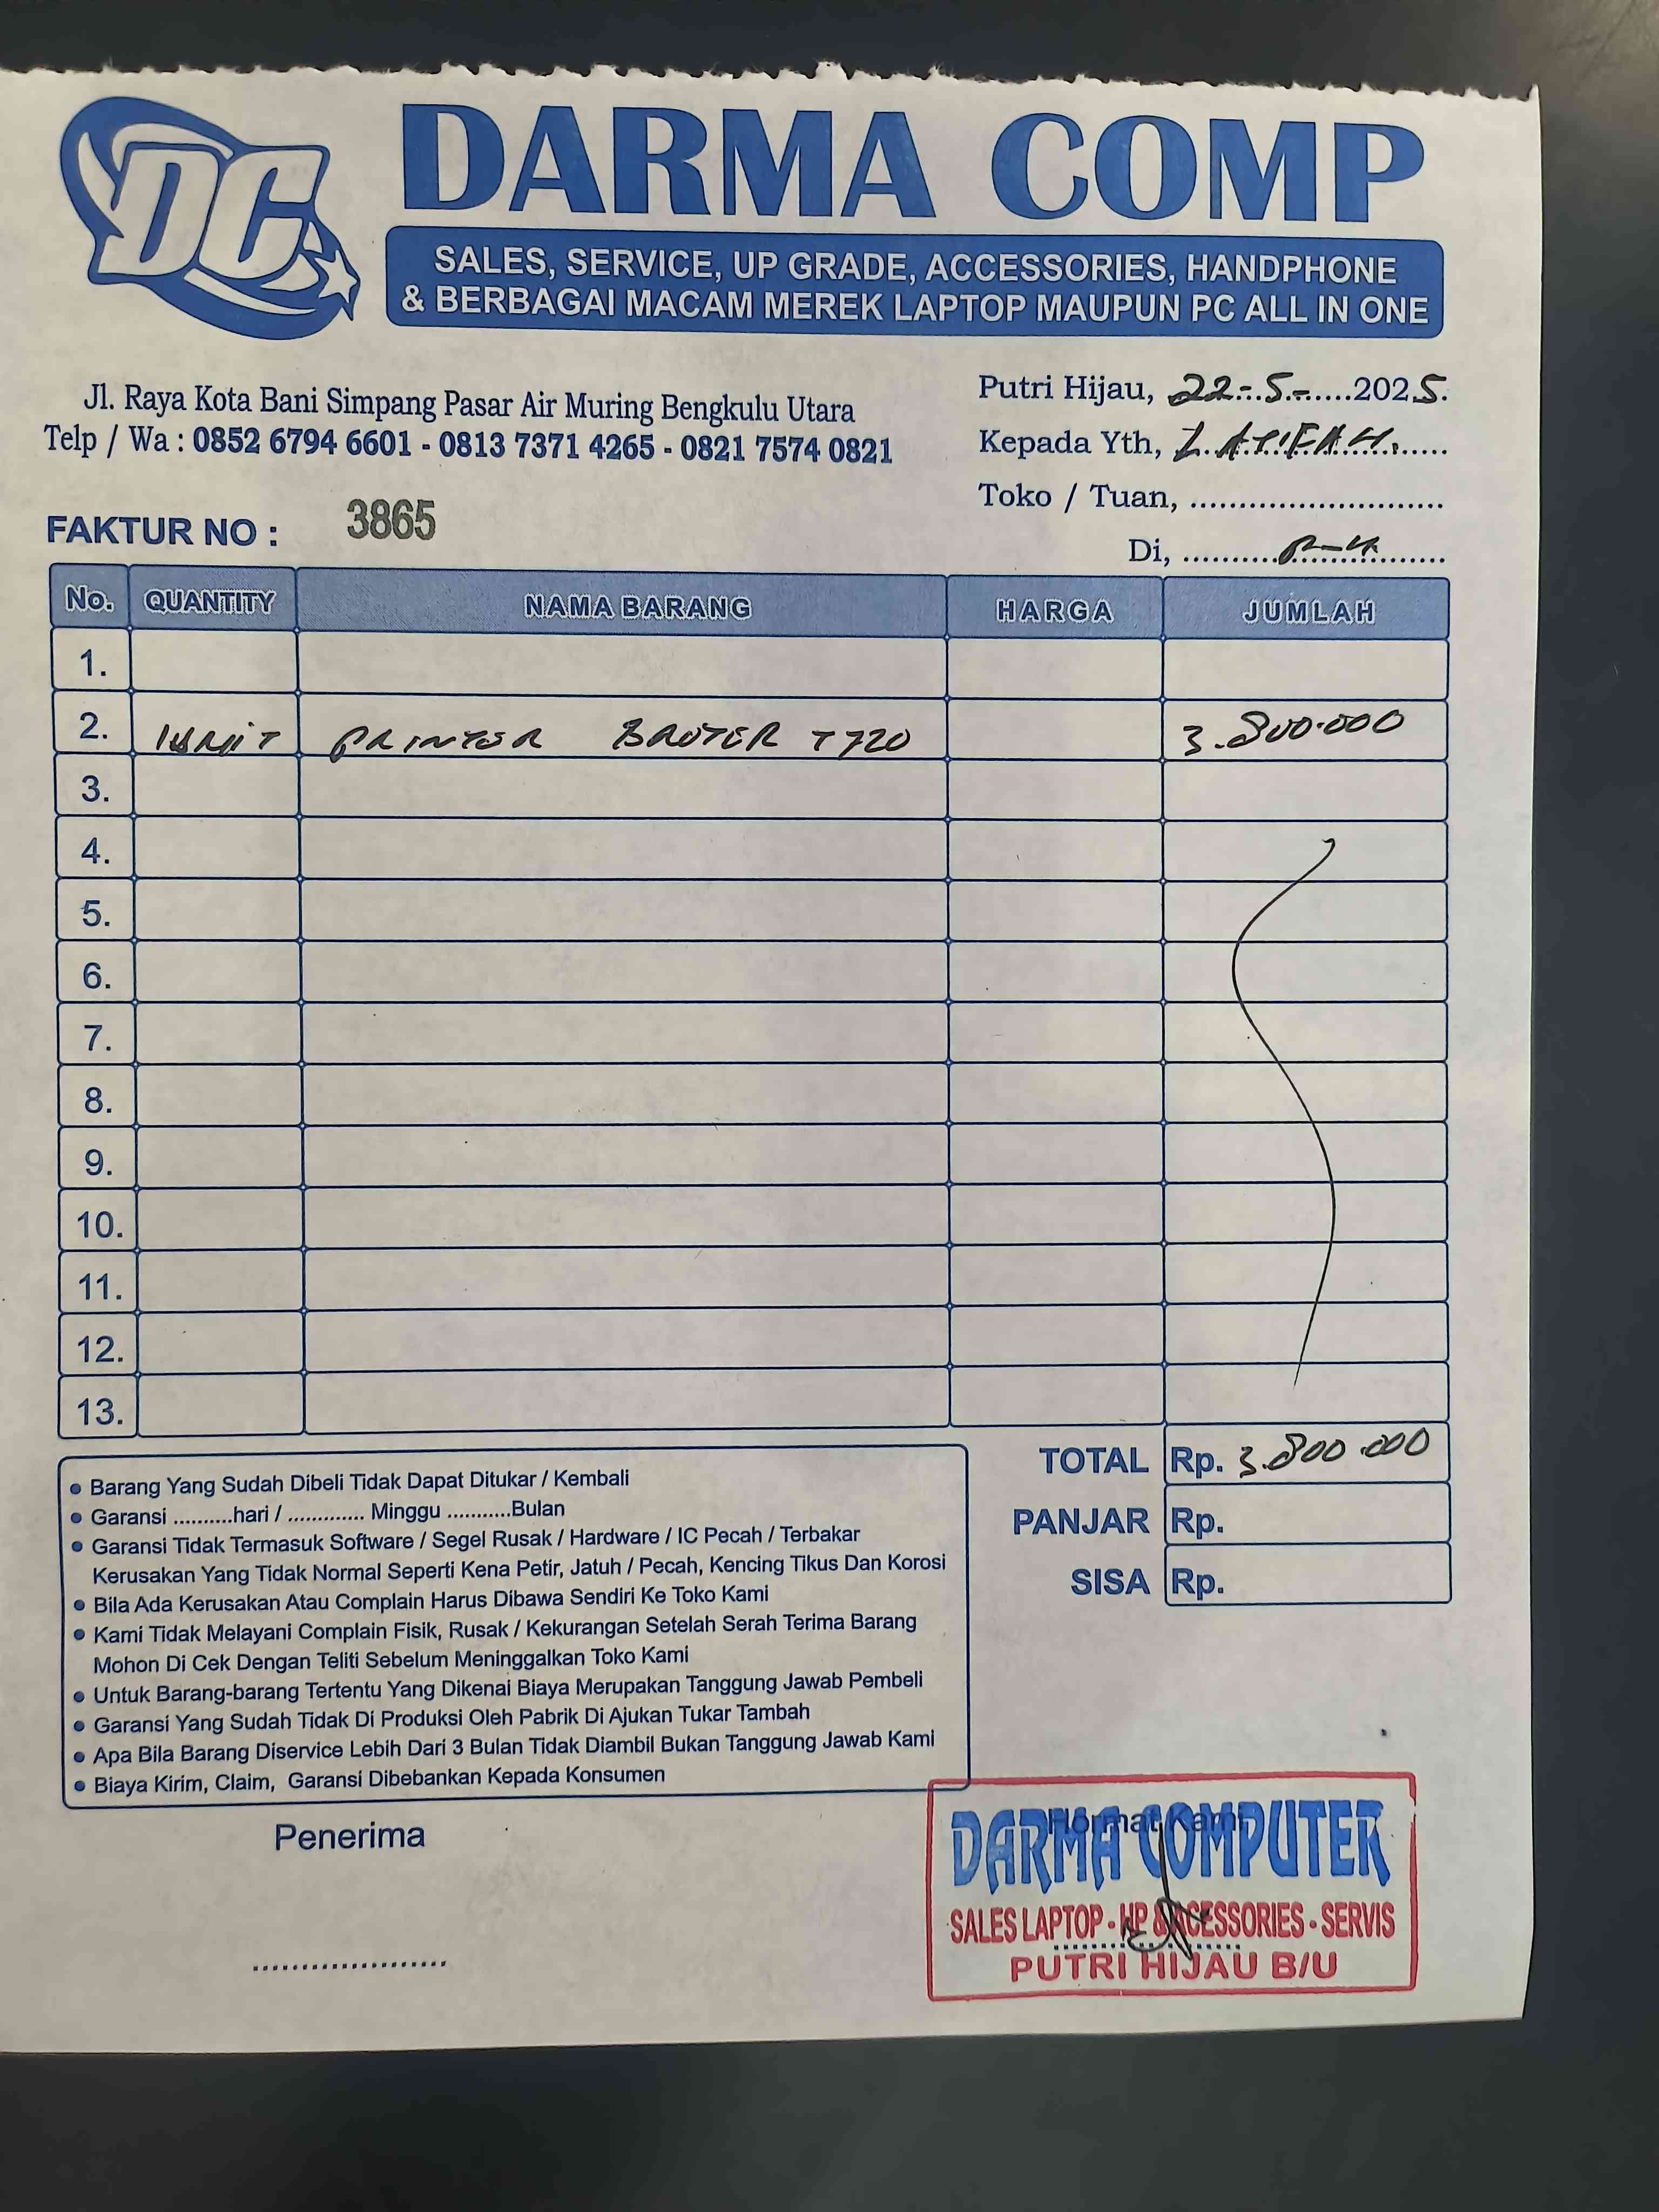 DC
DARMA COMP
SALES, SERVICE, UP GRADE, ACCESSORIES, HANDPHONE
& BERBAGAI MACAM MEREK LAPTOP MAUPUN PC ALL IN ONE
Jl. Raya Kota Bani Simpang Pasar Air Muring Bengkulu Utara
Telp / Wa : 0852 6794 6601 - 0813 7371 4265 - 0821 7574 0821
Putri Hijau, 22-5-2025.
Kepada Yth, LATIFAH.
Toko / Tuan, ..........................
Di, P-H
FAKTUR NO : 3865
No. QUANTITY NAMA BARANG HARGA JUMLAH
1.
2. 1 UNIT PRINTER BROTER T720 3.800.000
3.
4.
5.
6.
7.
8.
9.
10.
11.
12.
13.
TOTAL Rp. 3.800.000
PANJAR Rp.
SISA Rp.
• Barang Yang Sudah Dibeli Tidak Dapat Ditukar / Kembali
• Garansi ..........hari / ............. Minggu ...........Bulan
• Garansi Tidak Termasuk Software / Segel Rusak / Hardware / IC Pecah / Terbakar
Kerusakan Yang Tidak Normal Seperti Kena Petir, Jatuh / Pecah, Kencing Tikus Dan Korosi
• Bila Ada Kerusakan Atau Complain Harus Dibawa Sendiri Ke Toko Kami
• Kami Tidak Melayani Complain Fisik, Rusak / Kekurangan Setelah Serah Terima Barang
Mohon Di Cek Dengan Teliti Sebelum Meninggalkan Toko Kami
• Untuk Barang-barang Tertentu Yang Dikenai Biaya Merupakan Tanggung Jawab Pembeli
• Garansi Yang Sudah Tidak Di Produksi Oleh Pabrik Di Ajukan Tukar Tambah
• Apa Bila Barang Diservice Lebih Dari 3 Bulan Tidak Diambil Bukan Tanggung Jawab Kami
• Biaya Kirim, Claim, Garansi Dibebankan Kepada Konsumen
Penerima
.....................
Hormat Kami
DARMA COMPUTER
SALES LAPTOP - HP & ACESSORIES - SERVIS
PUTRI HIJAU B/U